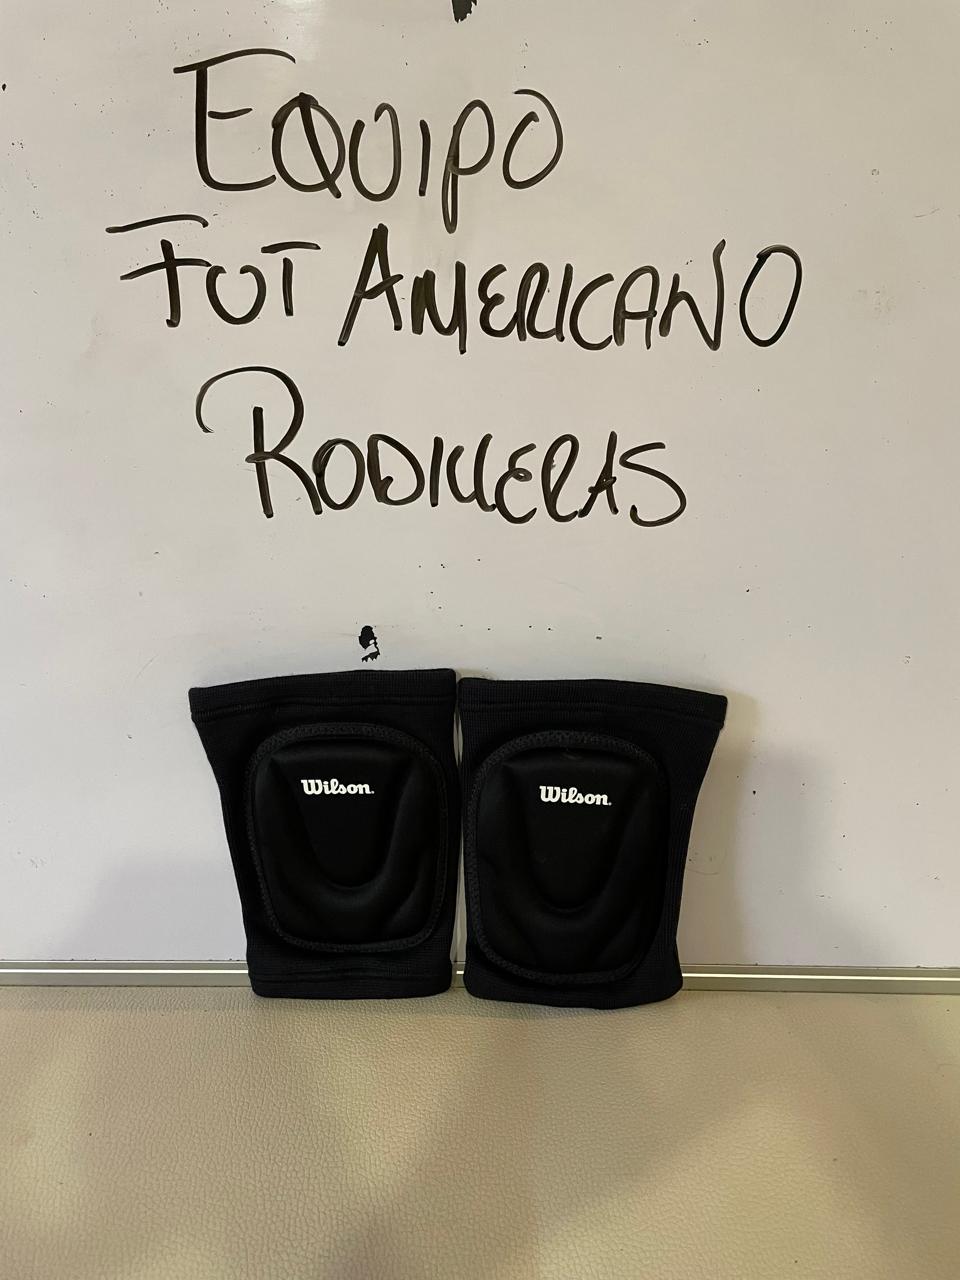 EQUIPO
FUT AMERICANO
RODILLERAS
Wilson.
Wilson.